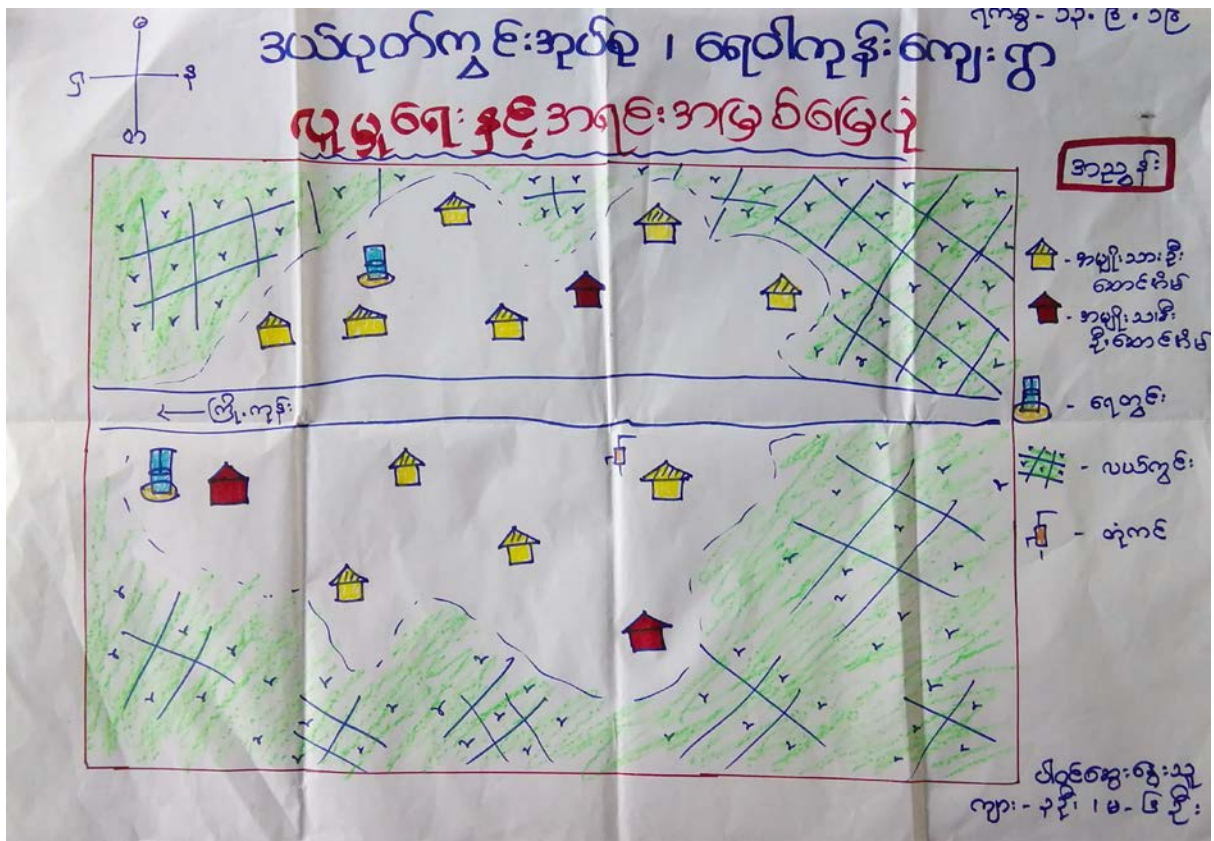 ရက်စွဲ - ၁၃.၉.၁၉
ဒယ်ပုတ်ကွင်းအုပ်စု ၊ ရေဝါကုန်းကျေးရွာ
လူမှုရေးနှင့်အရင်းအမြစ်မြေပုံ
အညွှန်း
- အမျိုးသားဦး
ဆောင်အိမ်
- အမျိုးသမီး
ဦးဆောင်အိမ်
- ရေတွင်း
- လယ်ကွင်း
- တုံကင်
← ကြို့ကုန်း
ပါဝင်ဆွေးနွေးသူ
ကျား - ၃ဦး ၊ မ - ၆ ဦး